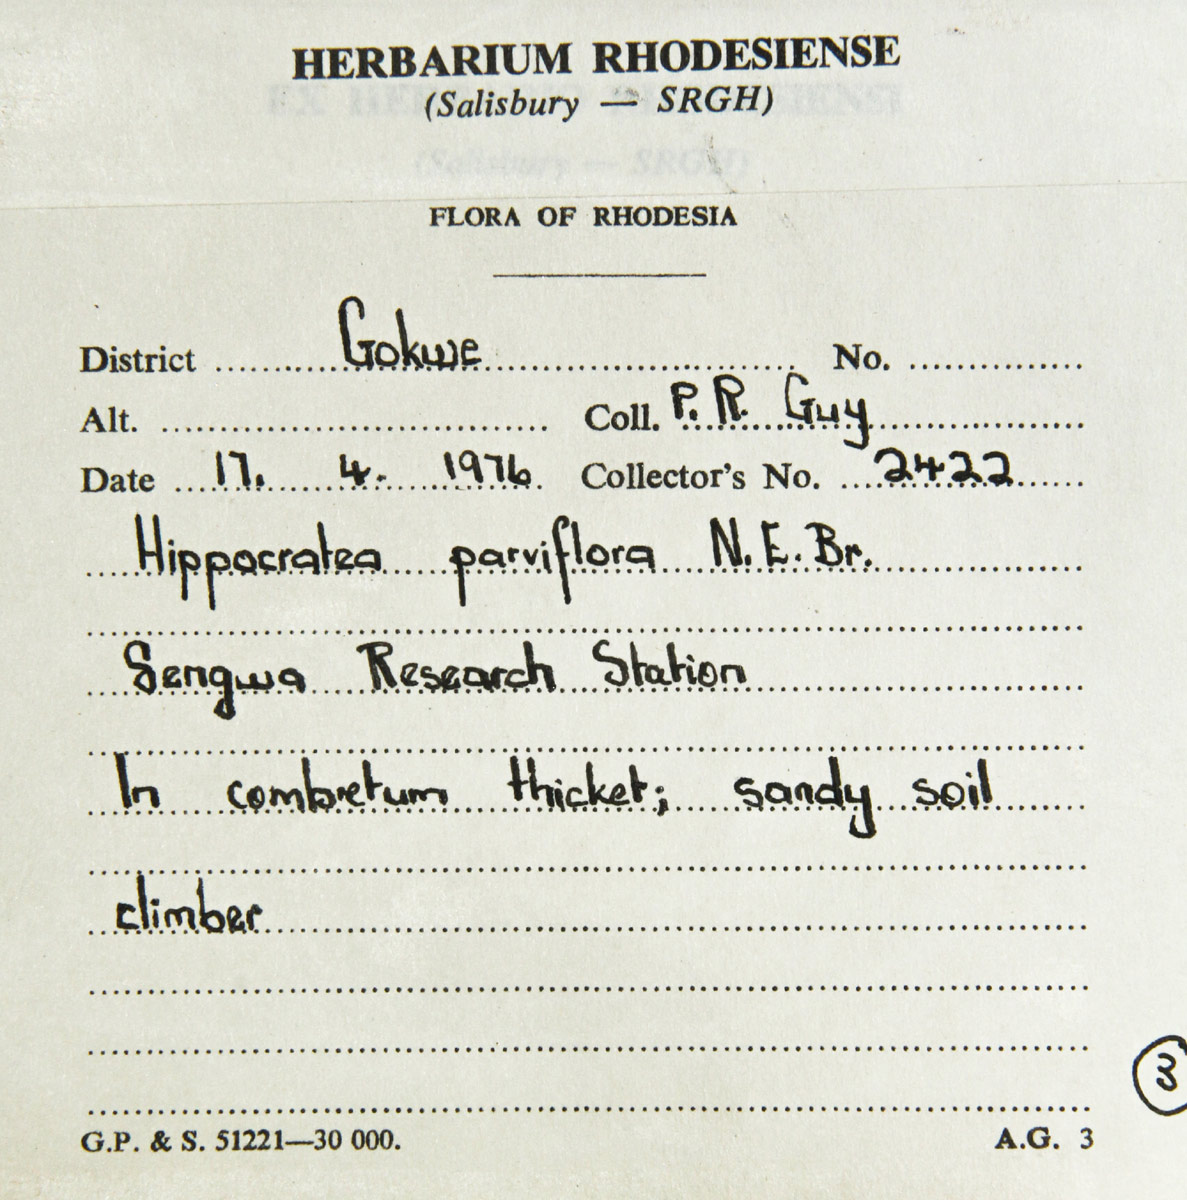 HERBARIUM RHODESIENSE
(Salisbury — SRGH)
FLORA OF RHODESIA
District Gokwe No.
Alt. Coll. P. R. Guy
Date 17. 4. 1976 Collector's No. 2422
Hippocratea parviflora N.E.Br.
Sengwa Research Station
In combretum thicket; sandy soil
climber
3
G.P. & S. 51221—30 000. A.G. 3